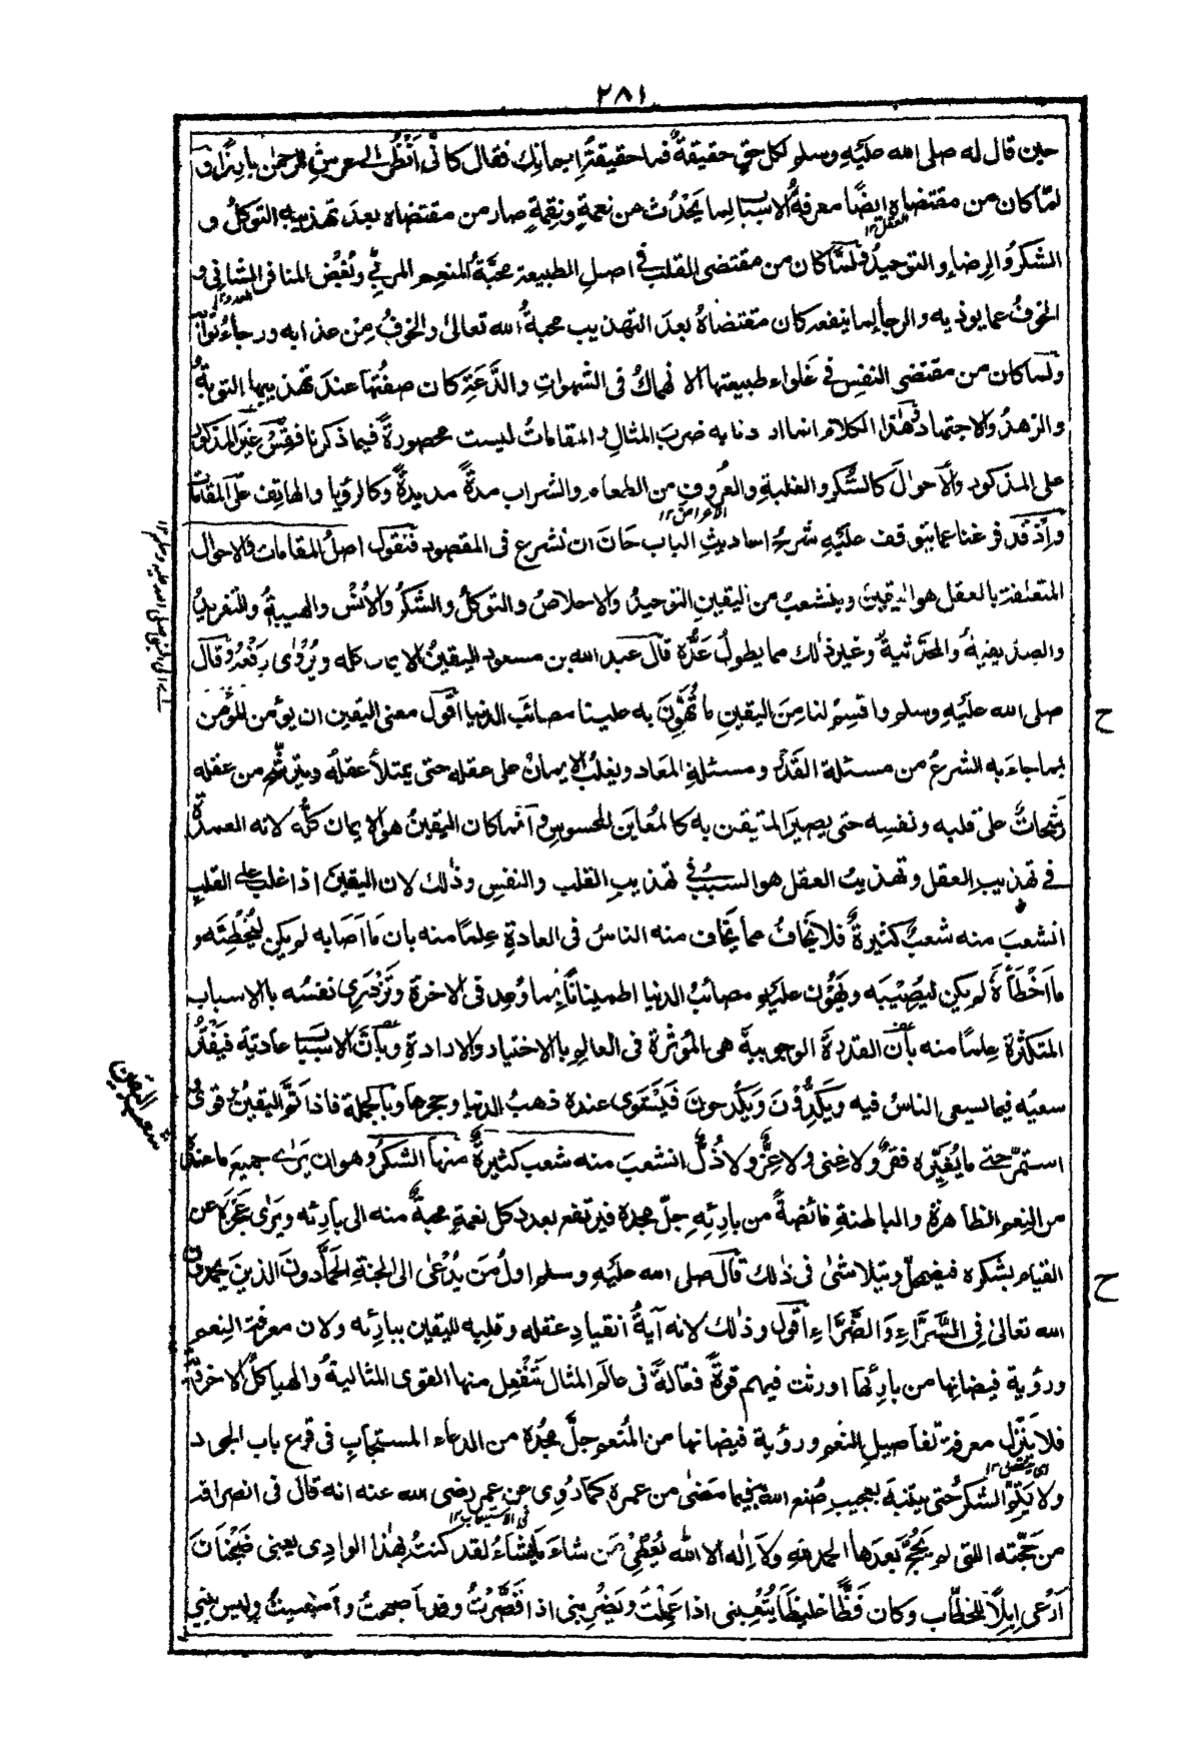 ٢٨١
حين قال له صلى الله عليه وسلم لكل حق حقيقة فما حقيقة إيمانك فقال كأني أنظر إلى عرش الرحمن بارزا و
لما كان من مقتضاه ايضا معرفة الاسباب لما يحدث من نعمة ونقمة صار من مقتضاه بعد تهذيبه التوكل و
العقل ١٢
الشكر والرضاء والتوحيد ولما كان من مقتضى القلب في اصل الطبيعة محبة المنعم المربي وبغض المنافر الشانئ و
الخوف عما يوذيه والرجاء لما ينفعه كان مقتضاه بعد التهذيب محبة الله تعالى والخوف من عذابه ورجاء ثوابه
ولما كان من مقتضى النفس في غلواء طبيعتها الانهماك في الشهوات والدعة كان صفتها عند تهذيبها التوبة
والزهد والاجتهاد وهذا الكلام انما اردنا به ضرب المثال والمقامات ليست محصورة فيما ذكرنا فقس غير المذكور
على المذكور والاحوال كالسكر والغلبة والعزوف من الطعام والشراب مدة مديدة وكالرؤيا والهاتف على المقامات
الاعراض ١٢
واذ قد فرغنا عما يتوقف عليه شرح احاديث الباب حان ان نشرع في المقصود فنقول اصل المقامات والاحوال
المتعلقة بالعقل هو اليقين وينشعب من اليقين التوحيد والاخلاص والتوكل والشكر والانس والهيبة والتفريد
والصديقية والمحدثية وغير ذلك مما يطول عده قال عبد الله بن مسعود اليقين الايمان كله ويروى رفعه وقال
صلى الله عليه وسلم واقسم لنا من اليقين ما تهون به علينا مصائب الدنيا اقول معنى اليقين ان يؤمن المؤمن
بما جاء به الشرع من مسئلة القدر ومسئلة المعاد ويغلب الايمان على عقله حتى يمتلأ عقله ويترشح من عقله
رشحات على قلبه ونفسه حتى يصير المتيقن به كالمعاين المحسوس وانما كان اليقين هو الايمان كله لانه العمدة
في تهذيب العقل وتهذيب العقل هو السبب في تهذيب القلب والنفس وذلك لان اليقين اذا غلب على القلب
انشعب منه شعب كثيرة فلا يخاف مما يخاف منه الناس في العادة علما منه بان ما اصابه لم يكن ليخطئه و
ما اخطأه لم يكن ليصيبه ويهون عليه مصائب الدنيا اطمينانا بما وعد في الاخرة وتزدري نفسه بالاسباب
المتكثرة علما منه بأن القدرة الوجوبية هي المؤثرة في العالم بالاختيار والارادة وبأن الاسباب عادية فيفتر
سعيه فيما يسعى الناس فيه ويكدون ويكدحون فيستوي عنده ذهب الدنيا وحجرها وبالجملة فاذا تم اليقين وقوي و
استمر حتى ما يغيره فقر ولا غنى ولا عز ولا ذل انشعب منه شعب كثيرة منها الشكر وهو ان يرى جميع ما عنده
من النعم الظاهرة والباطنة فائضة من بارئه جل مجده فيرتفع بعدد كل نعمة محبة منه الى بارئه ويرى عجزه عن
القيام بشكره فيضمحل ويتلاشى في ذلك قال صلى الله عليه وسلم اول من يدعى الى الجنة الحمادون الذين يحمدون
الله تعالى في السراء والضراء اقول وذلك لانه آية انقياد عقله وقلبه لليقين ببارئه ولان معرفة النعم
ورؤية فيضانها من بارئها اورثت فيهم قوة فعالة في عالم المثال تنفعل منها القوى المثالية والهياكل الاخروية
فلا ينزل معرفة تفاصيل النعم ورؤية فيضانها من المنعم جل مجده من الدعاء المستجاب في قرع باب الجود
ولا يتم الشكر حتى يتنبه بعجيب صنع الله فيما مضى من عمره كما روي عن عمر رضي الله عنه انه قال في انصرافه
في الاستيعاب ١٢
من حجته التي لم يحج بعدها الحمد لله ولا اله الا الله يعطي من شاء ما يشاء لقد كنت بهذا الوادي يعني ضجنان
ارعى ابلا للخطاب وكان فظا غليظا يتعبني اذا عملت ويضربني اذا قصرت وقد اصبحت وامسيت وليس بيني
ح
ح
شعب اليقين